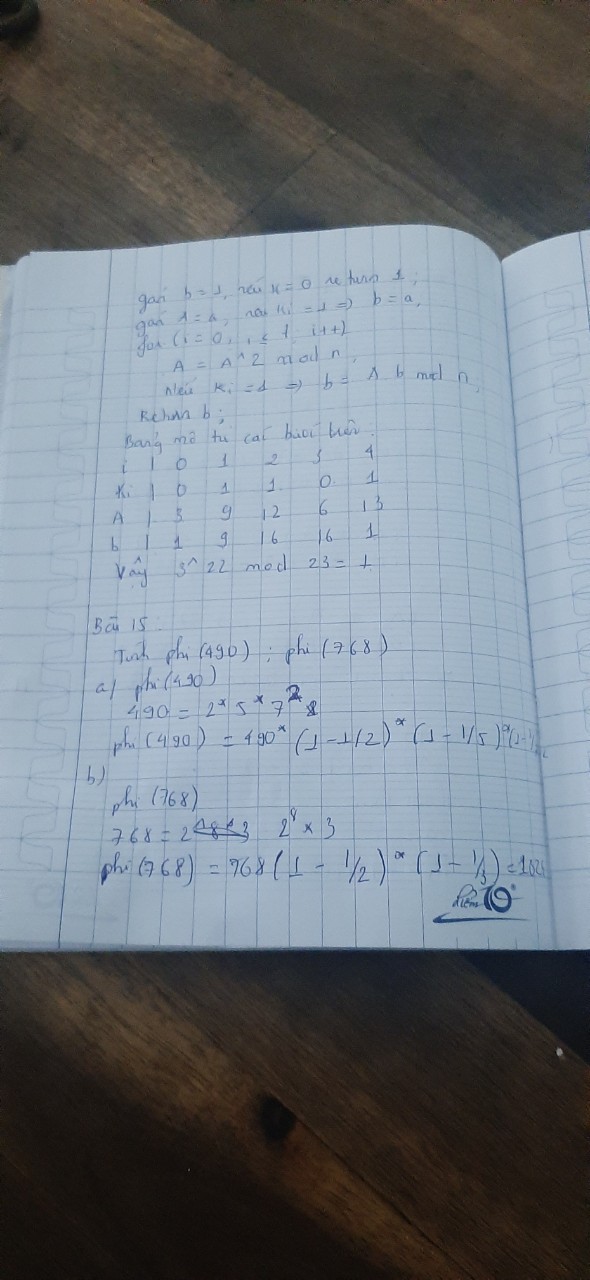 gán b = 1, nếu k = 0 return 1;
gán A = a, nếu ki = 1 => b = a,
for (i = 0, , ≤ t, i++)
A = A^2 mod n,
Nếu Ki = 1 => b = A b mod n,
Return b;
Bảng mô tả các bước trên
i | 0 1 2 3 4
Ki | 0 1 1 0 1
A | 3 9 12 6 13
b | 1 9 16 16 1
Vậy 3^22 mod 23 = 1
Bài 15:
Tính phi(490) ; phi(768)
a) phi(490)
490 = 2 * 5 * 7^2
phi(490) = 490 * (1 - 1/2) * (1 - 1/5) * (1 -
b)
phi(768)
768 = 2^8 × 3
phi(768) = 768 (1 - 1/2) * (1 - 1/3) =
điểm 10